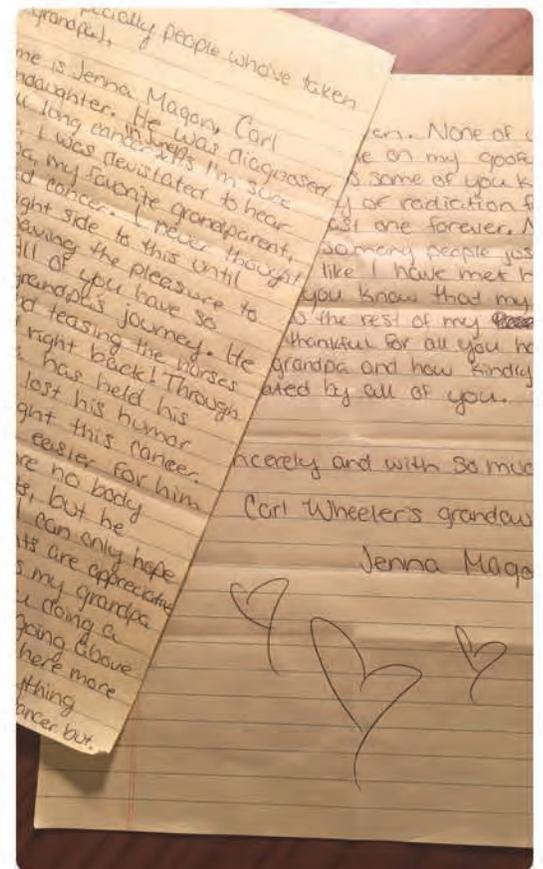 ecially people who've taken
grandpa).
me is Jenna Magan, Carl
ndaughter. He was diagnosed
long cancer I'm sure
I was devistated to hear
my favorite grandparent,
d cancer. I never thought
ght side to this until
aving the pleasure to
all of you have so
grandpa's journey. He
d teasing the nurses
right back! Through
has held his
lost his humor
ght this cancer.
easier for him
re no body
ts, but he
I can only hope
ts are appreciative
s my grandpa
u doing a
going above
here more
thing
ancer but
en. None of
e on my goofy
s some of you k
y or radiation f
st one forever. N
so many people jus
like I have met h
you know that my
s the rest of my
thankful for all you ha
grandpa and how kindly
ated by all of you.
ncerely and with so muc
Carl Wheeler's grandau
Jenna Maga